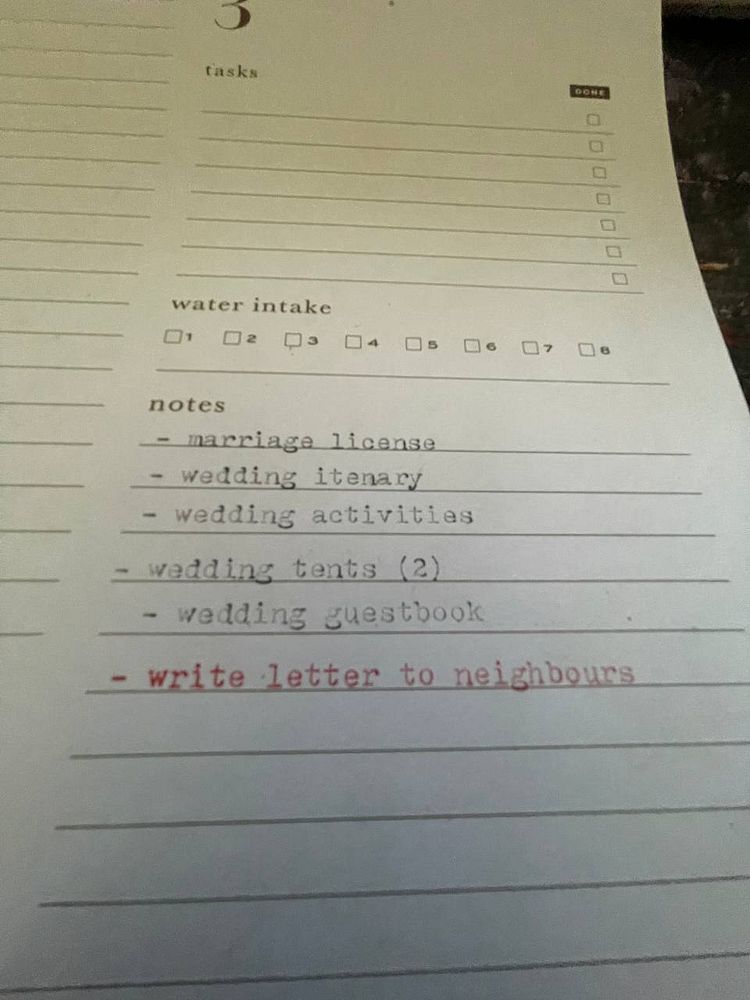 3
tasks
DONE
water intake
1 2 3 4 5 6 7 8
notes
- marriage license
- wedding itenary
- wedding activities
- wedding tents (2)
- wedding guestbook
- write letter to neighbours